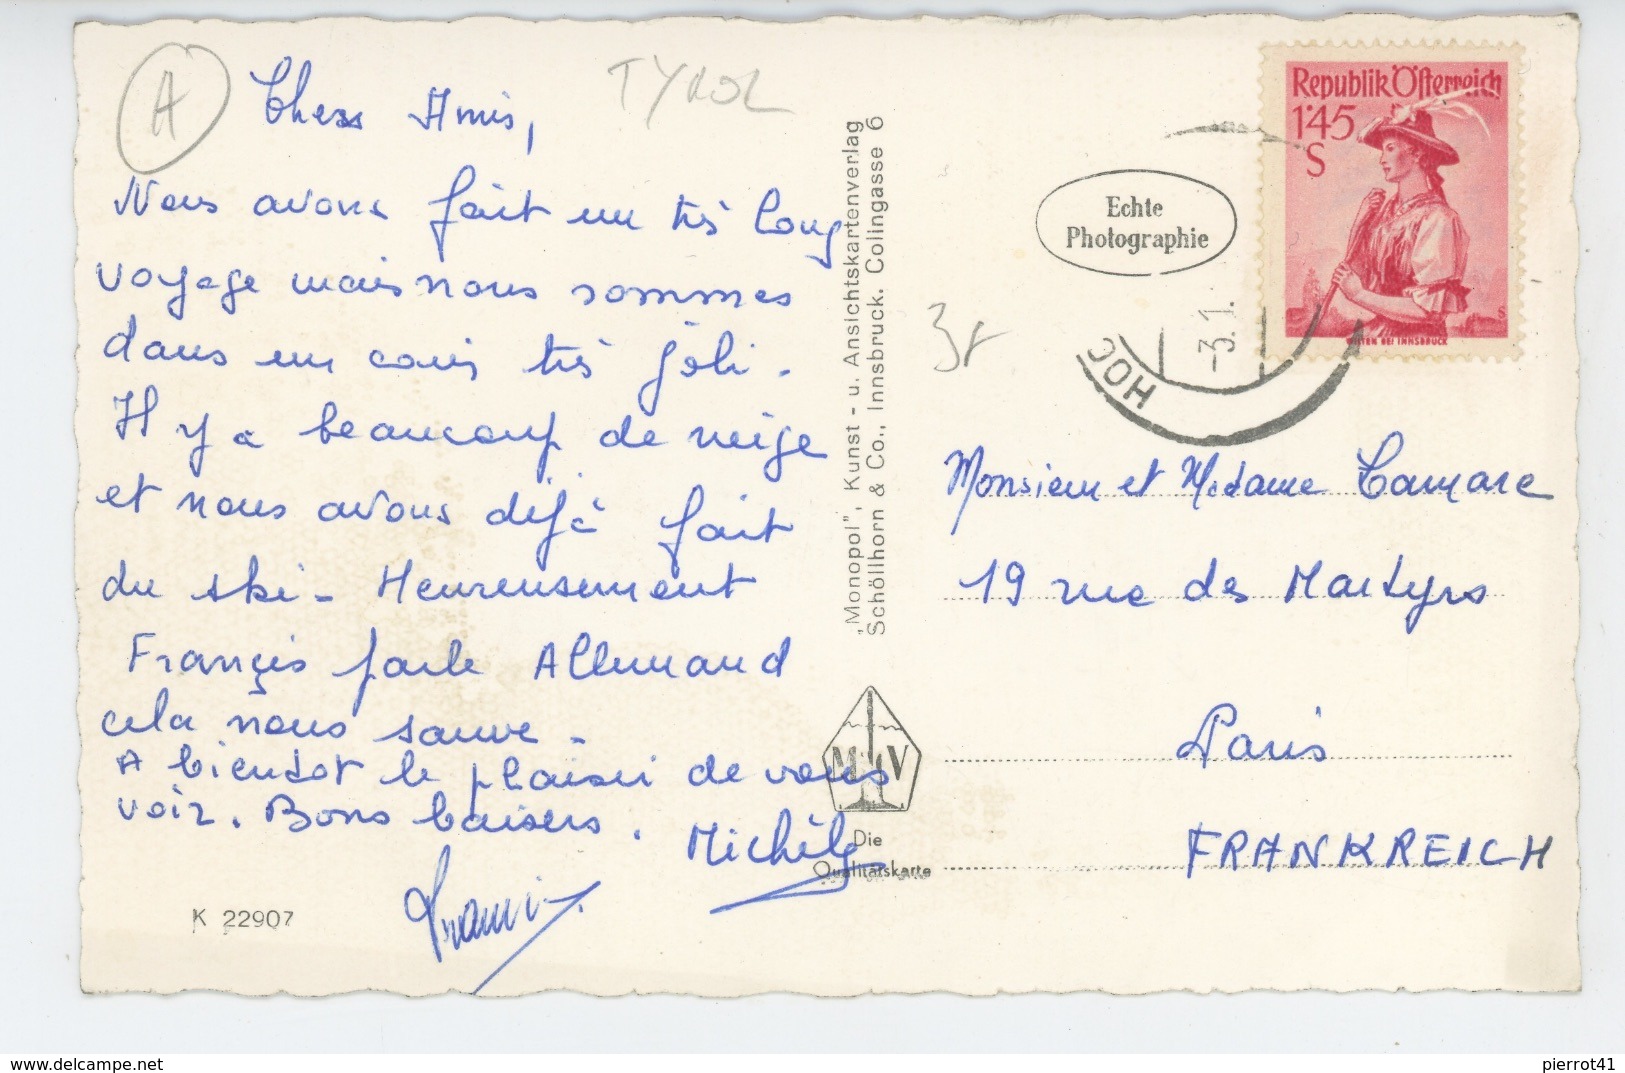 A
TYROL
Chers Amis,
Nous avons fait un très long
voyage mais nous sommes
dans un coin très joli -
Il y a beaucoup de neige
et nous avons déjà fait
du ski - Heureusement
François parle Allemand
cela nous sauve -
A bientôt le plaisir de vous
voir. Bons baisers.
Michèle
K 22907
"Monopol", Kunst - u. Ansichtskartenverlag
Schöllhorn & Co., Innsbruck. Colingasse 6
M V
Die
Qualitätskarte
Echte
Photographie
Republik Österreich
1'45
S
WILTEN BEI INNSBRUCK
-3.1.
HOC
Monsieur et Madame Camare
19 rue des Martyrs
Paris
FRANKREICH
delcampe.net
pierrot41